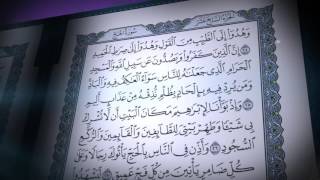 الجزء السابع عشر
سورة الحج
وَهُدُوٓا۟ إِلَى ٱلطَّيِّبِ مِنَ ٱلْقَوْلِ وَهُدُوٓا۟ إِلَىٰ صِرَٰطِ ٱلْحَمِيدِ
إِنَّ ٱلَّذِينَ كَفَرُوا۟ وَيَصُدُّونَ عَن سَبِيلِ ٱللَّهِ وَٱلْمَسْجِدِ
ٱلْحَرَامِ ٱلَّذِى جَعَلْنَٰهُ لِلنَّاسِ سَوَآءً ٱلْعَٰكِفُ فِيهِ وَٱلْبَادِ
وَمَن يُرِدْ فِيهِ بِإِلْحَادٍۭ بِظُلْمٍ نُّذِقْهُ مِنْ عَذَابٍ أَلِيمٍ
وَإِذْ بَوَّأْنَا لِإِبْرَٰهِيمَ مَكَانَ ٱلْبَيْتِ أَن لَّا تُشْرِكْ
بِى شَيْـًٔا وَطَهِّرْ بَيْتِىَ لِلطَّآئِفِينَ وَٱلْقَآئِمِينَ وَٱلرُّكَّعِ
ٱلسُّجُودِ وَأَذِّن فِى ٱلنَّاسِ بِٱلْحَجِّ يَأْتُوكَ رِجَالًا وَعَلَىٰ
كُلِّ ضَامِرٍ يَأْتِينَ مِن كُلِّ فَجٍّ عَمِيقٍ